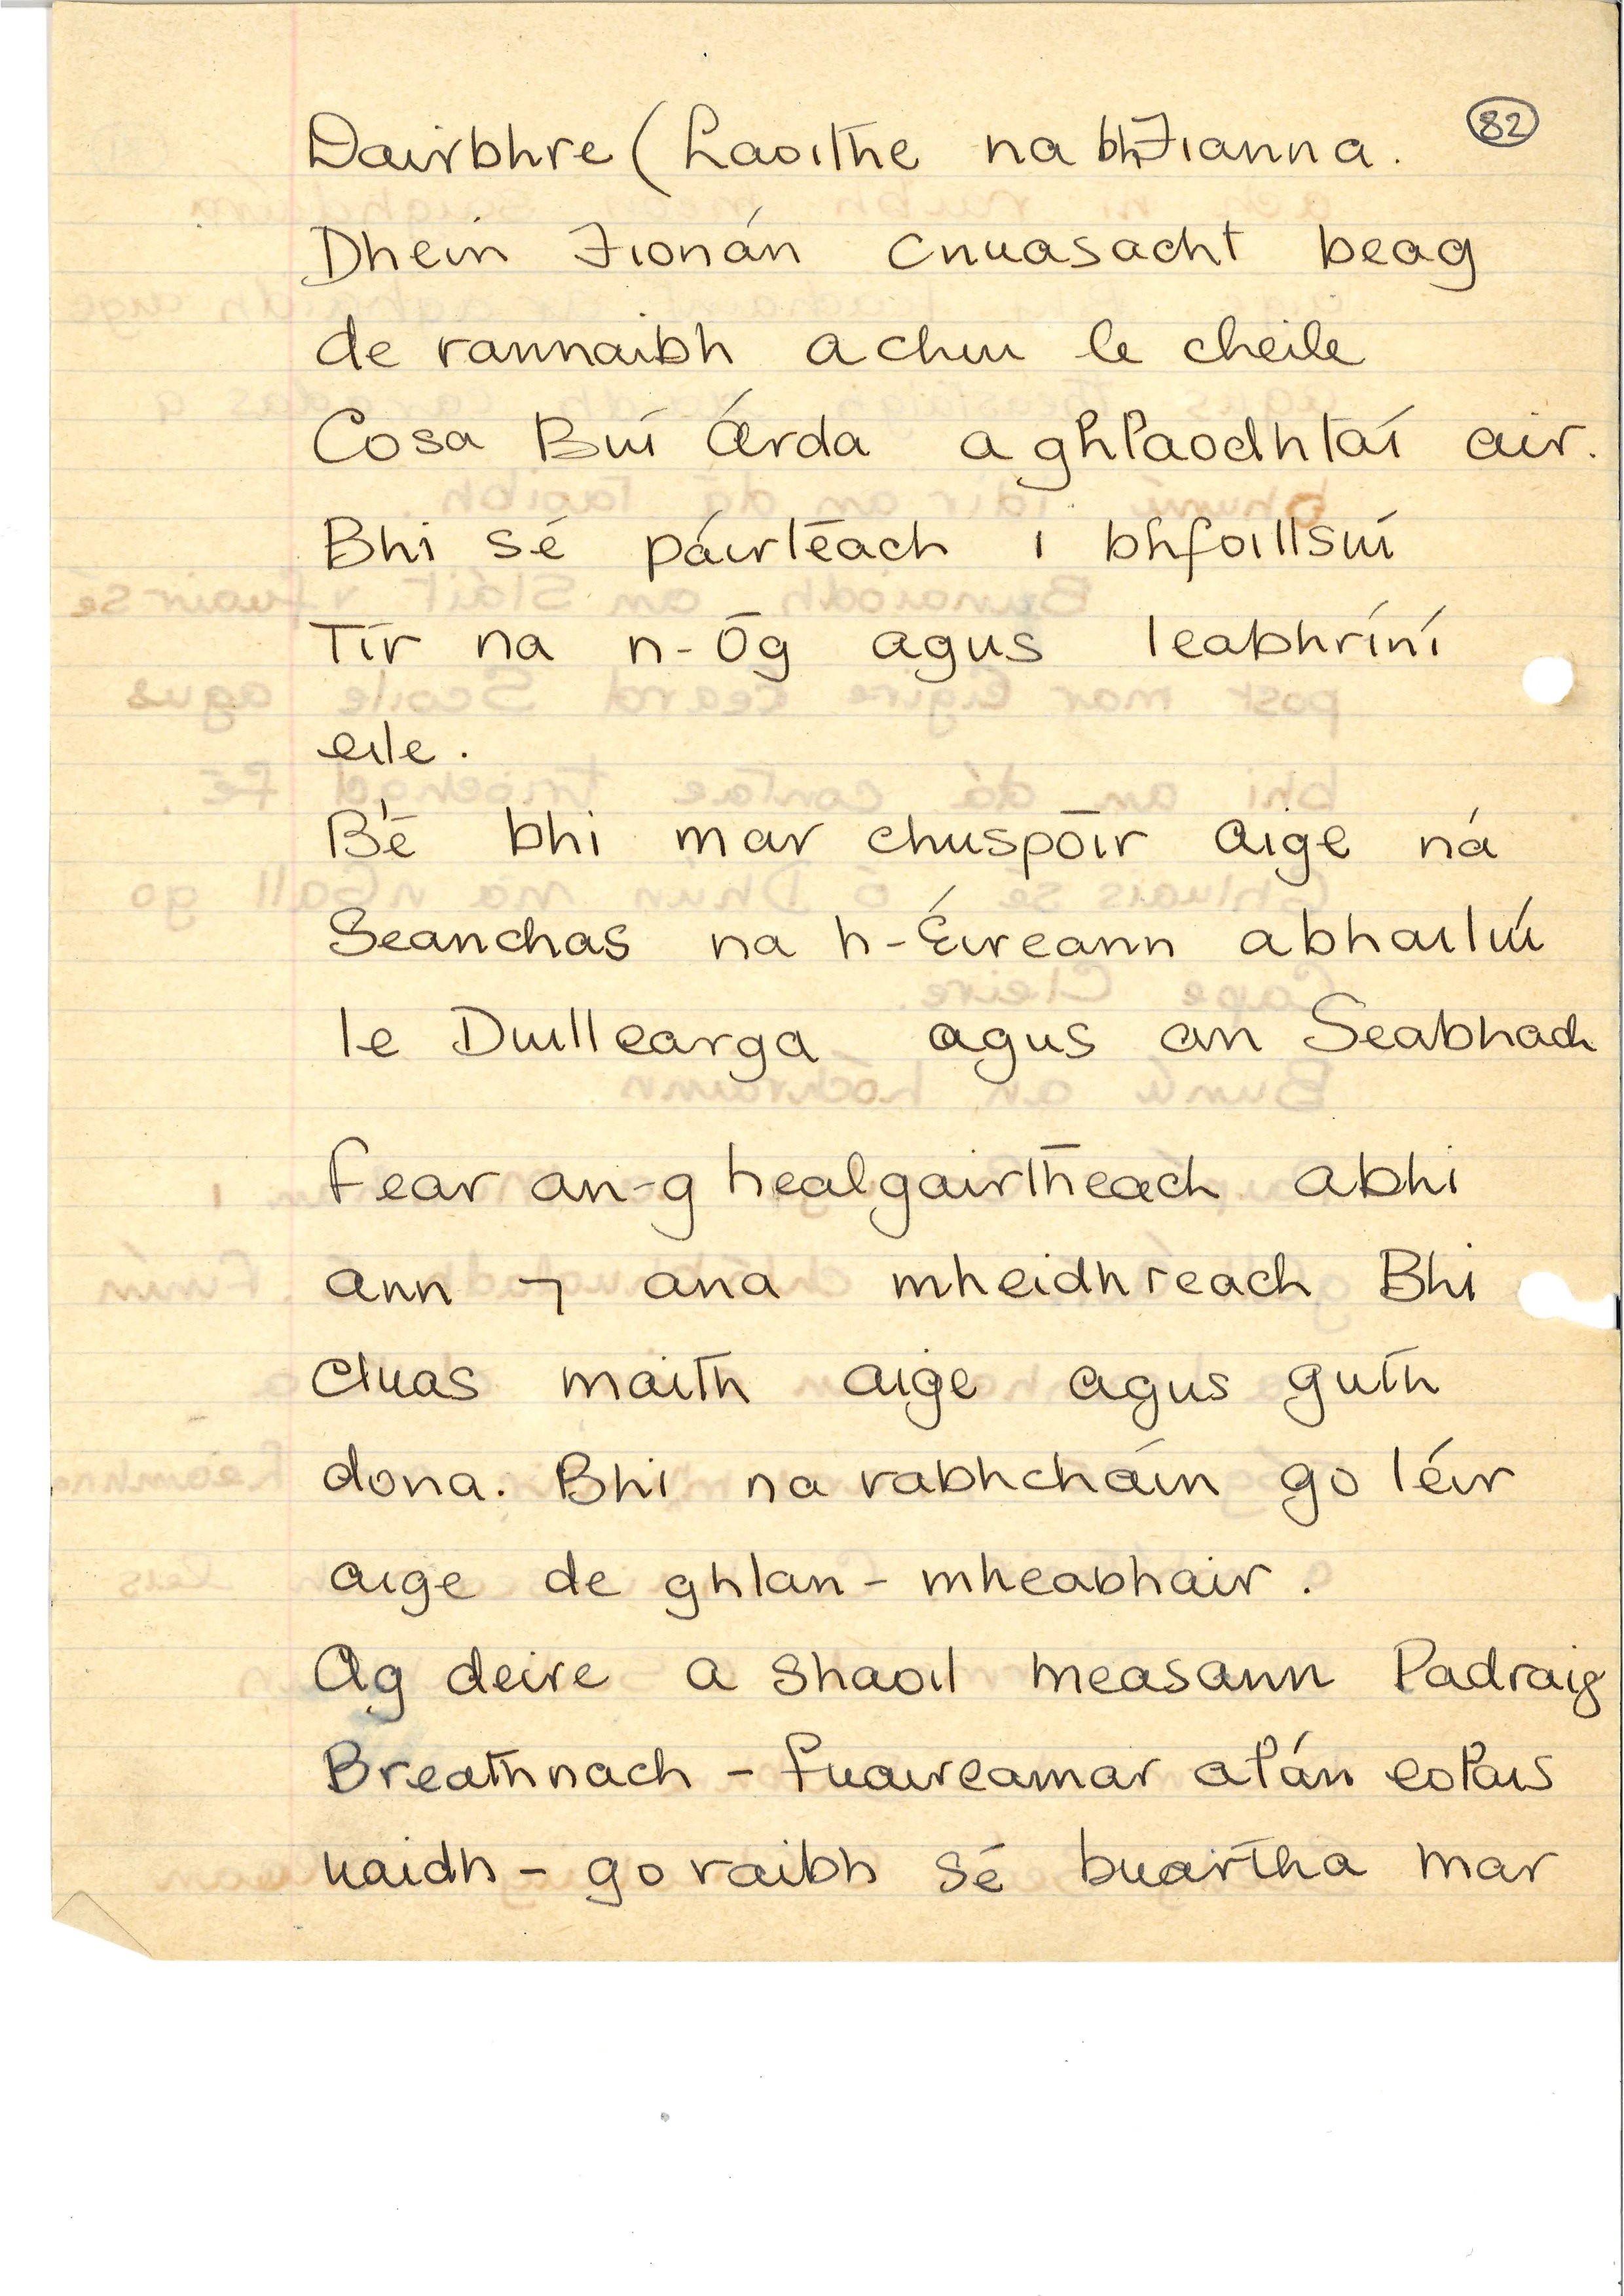 82
Dairbhre (Laoithe na bhFianna.
Dhein Fionán cnuasacht beag
de rannaibh a chur le cheile
Cosa Buí Árda a ghlaodhtaí air.
Bhi sé páirtéach i bhfoillsiú
Tír na n-Óg agus leabhríní
eile.
B'é bhi mar chuspóir aige ná
Seanchas na h-Éireann abhailiú
le Duillearga agus an Seabhach
Fear an-ghealgairitheach abhi
ann ⁊ ana mheidhreach Bhi
cluas maith aige agus guth
dona. Bhi na rabhcháin go léir
aige de ghlan-mheabhair.
Ag deire a shaoil measann Padraig
Breathnach - fuaireamar alán eolais
uaidh - go raibh sé buartha mar